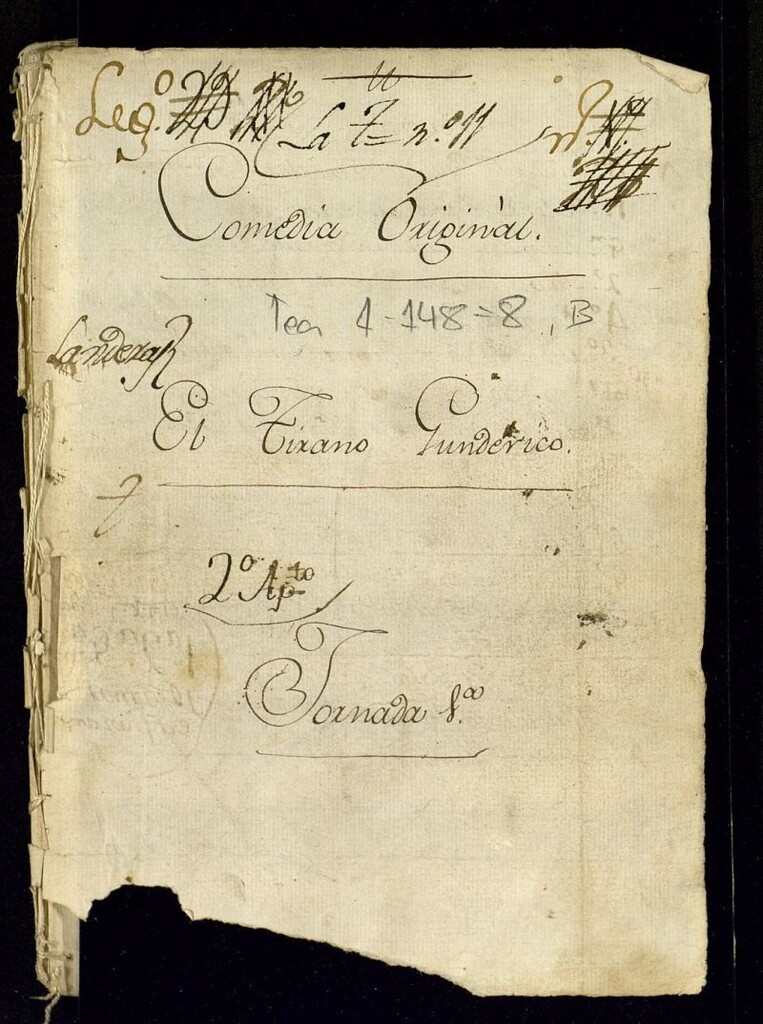 Leg.º
La t= n.º 11
Comedia Original.
Tea 1-148=8, B
El Tirano Gunderico.
2º Apto
Jornada 1.ª